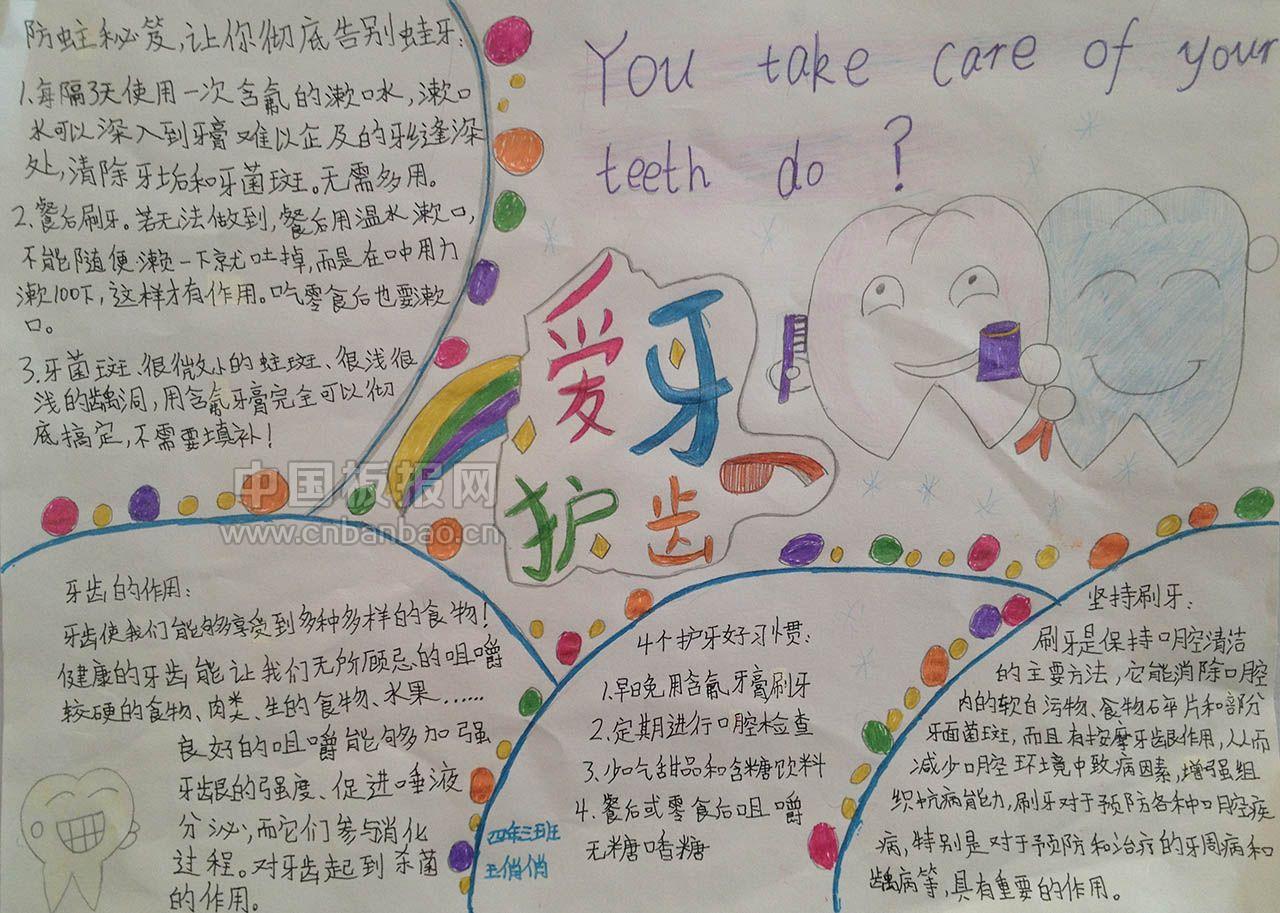 防蛀秘笈,让你彻底告别蛀牙:
1.每隔3天使用一次含氟的漱口水,漱口
水可以深入到牙膏难以企及的牙缝深
处,清除牙垢和牙菌斑。无需多用。
2.餐后刷牙。若无法做到,餐后用温水漱口,
不能随便漱一下就吐掉,而是在口中用力
漱100下,这样才有作用。吃零食后也要漱
口。
3.牙菌斑、很微小的蛀斑、很浅很
浅的龋洞,用含氟牙膏完全可以彻
底搞定,不需要填补!
You take care of your
teeth do ?
爱牙
护齿
中国板报网
www.cnbanbao.cn
牙齿的作用:
牙齿使我们能够享受到多种多样的食物!
健康的牙齿能让我们无所顾忌的咀嚼
较硬的食物、肉类、生的食物、水果……
良好的咀嚼能够加强
牙龈的强度、促进唾液
分泌,而它们参与消化
过程。对牙齿起到杀菌
的作用。
4个护牙好习惯:
1.早晚用含氟牙膏刷牙
2.定期进行口腔检查
3.少吃甜品和含糖饮料
4.餐后或零食后咀嚼
无糖口香糖
四年三班
王俏俏
坚持刷牙:
刷牙是保持口腔清洁
的主要方法,它能消除口腔
内的软白污物、食物碎片和部分
牙面菌斑,而且有按摩牙龈作用,从而
减少口腔环境中致病因素,增强组
织抗病能力,刷牙对于预防各种口腔疾
病,特别是对于预防和治疗的牙周病和
龋病等,具有重要的作用。